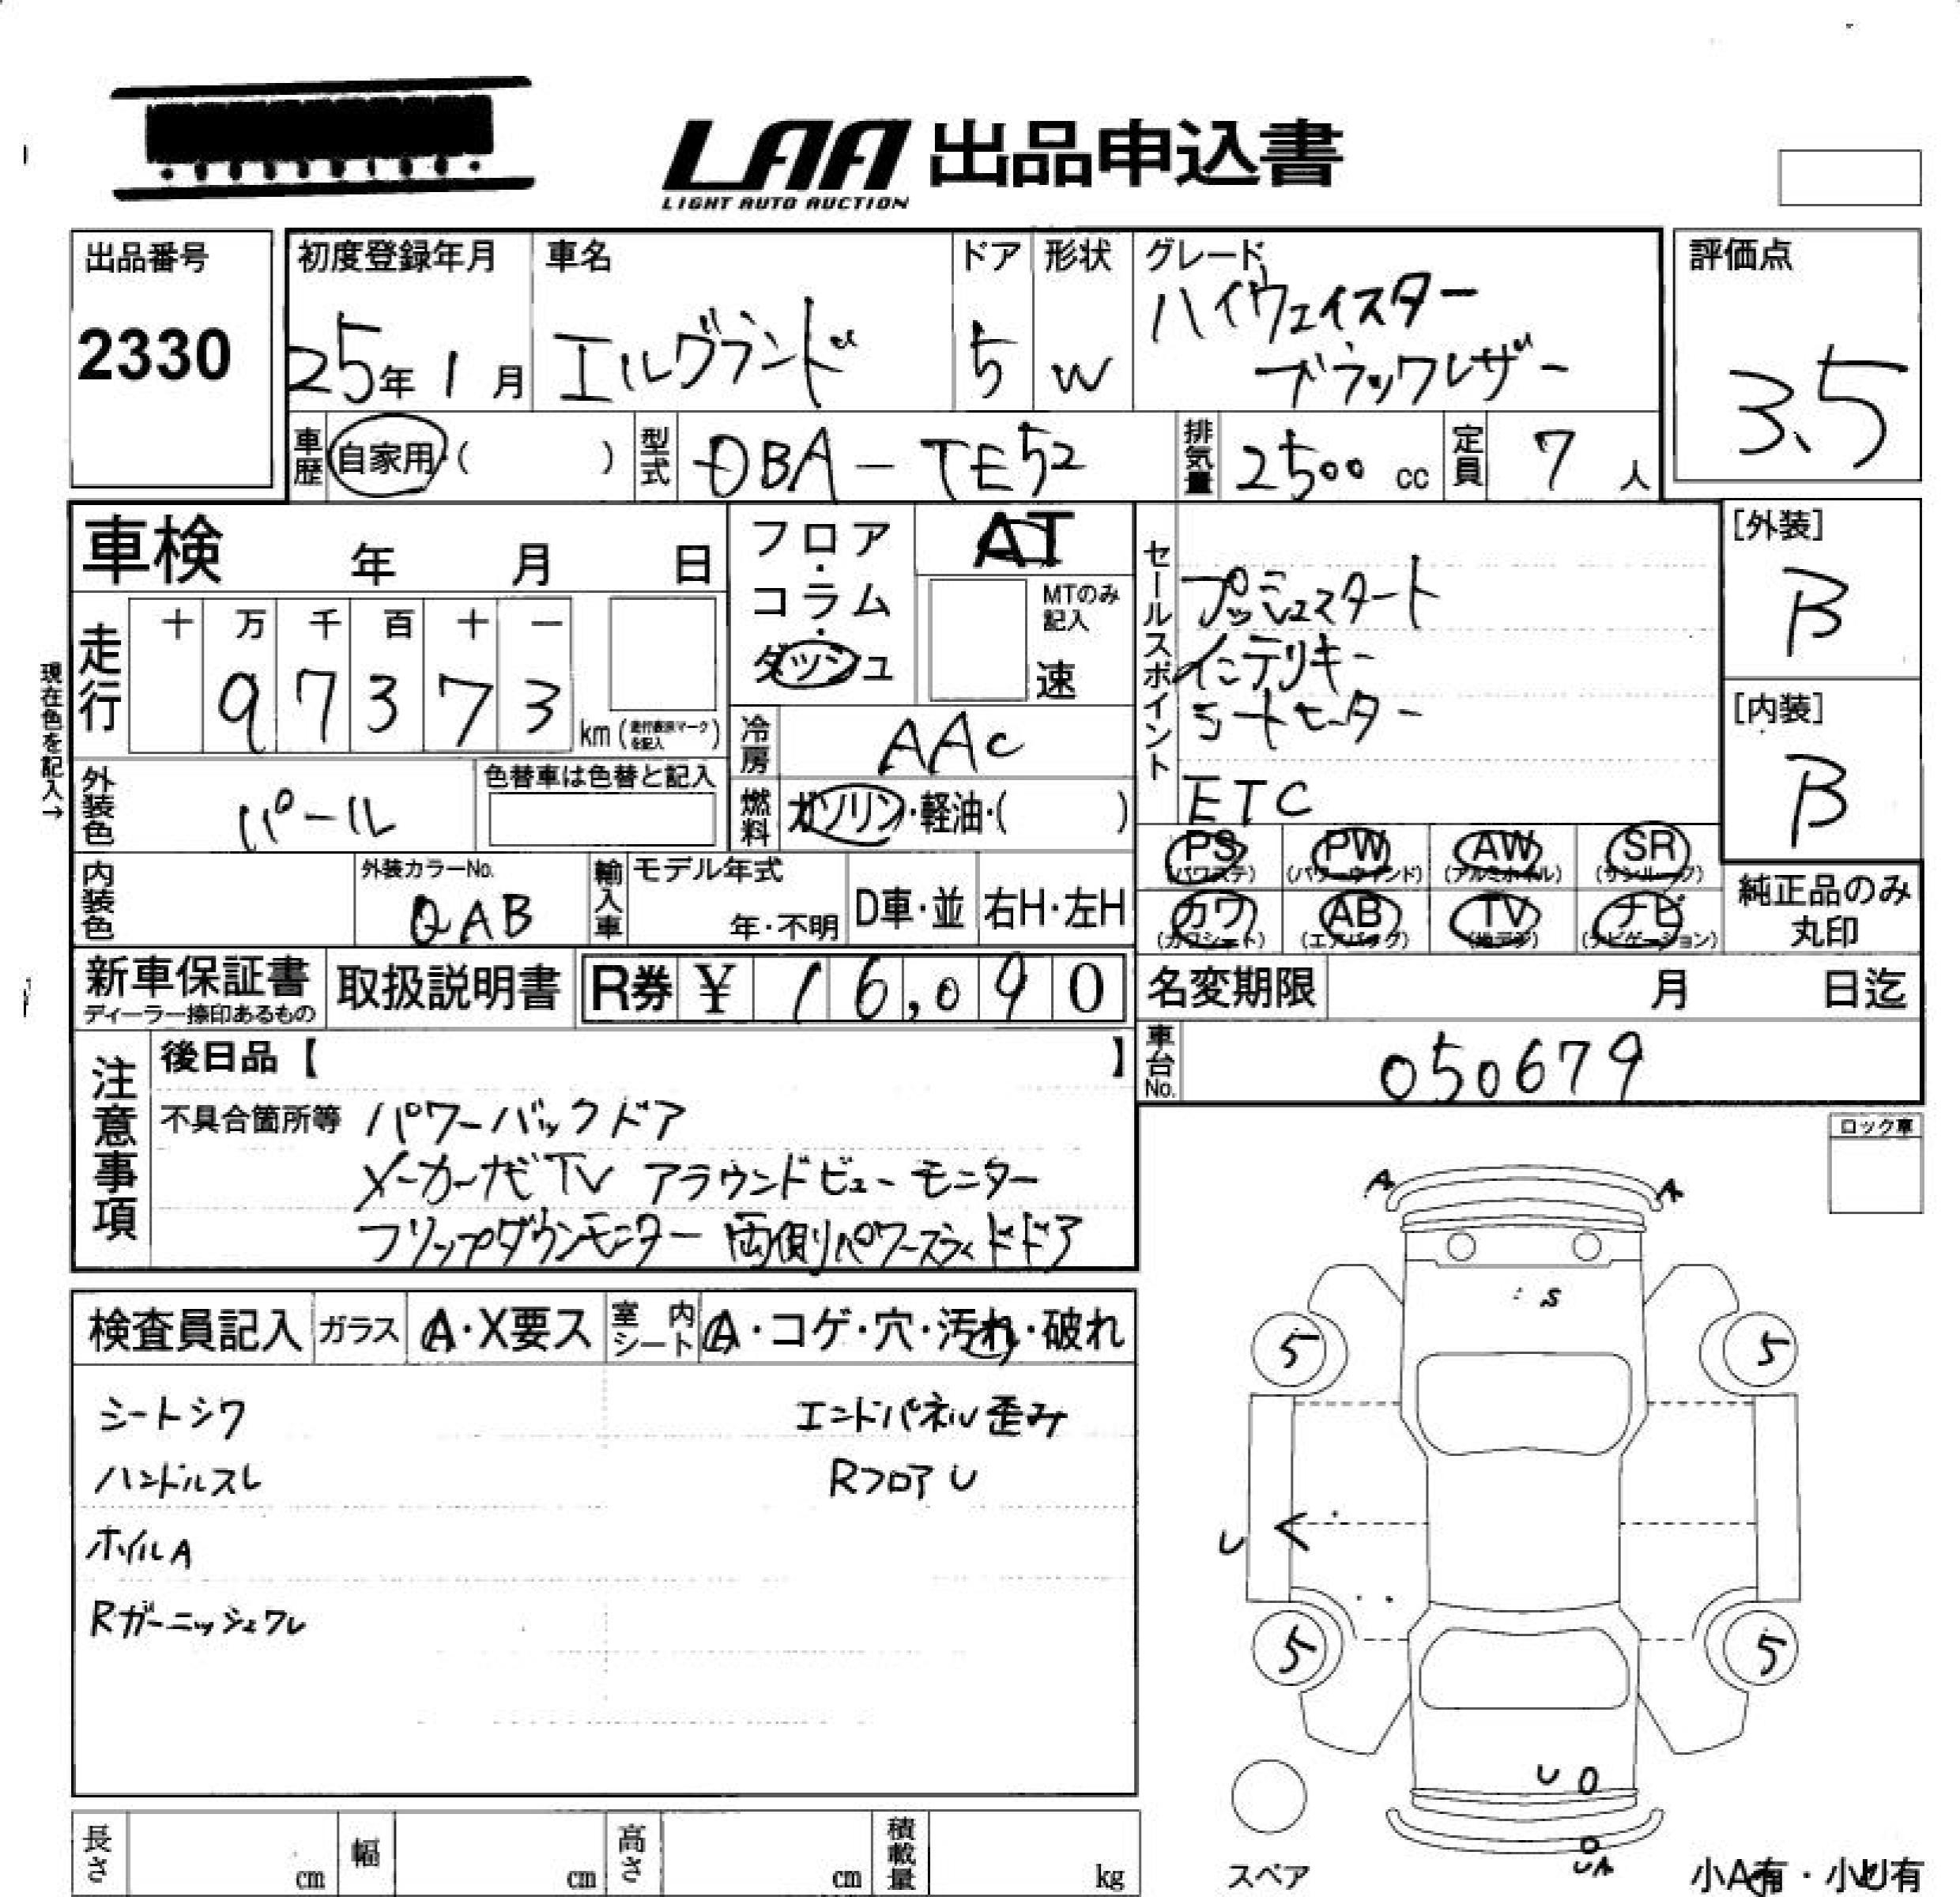 LAA 出品申込書
LIGHT AUTO AUCTION
出品番号
2330
初度登録年月
25年 1月
車名
エルグランド
ドア
5
形状
W
グレード
ハイウェイスター
ブラックレザー
評価点
3.5
車歴
自家用・( )
型式
DBA-TE52
排気量
2500 cc
定員
7 人
車検 年 月 日
フロア・コラム・ダッシュ
AT
MTのみ記入
速
現在色を記入→
走行
十 万 千 百 十 一
9 7 3 7 3
km (走行表示マークを記入)
冷房
AAC
燃料
ガソリン・軽油・( )
外装色
パール
色替車は色替と記入
セールスポイント
プッシュスタート
インテリキー
シートヒーター
ETC
[外装]
B
[内装]
B
PS (パワステ)
PW (パワーウィンド)
AW (アルミホイル)
SR (サンルーフ)
カワ (カワシート)
AB (エアバック)
TV (地デジ)
ナビ (ナビゲーション)
純正品のみ丸印
内装色
外装カラーNo.
QAB
輸入車
モデル年式
年・不明
D車・並
右H・左H
新車保証書
ディーラー捺印あるもの
取扱説明書
R券 ¥ 16,090
名変期限 月 日迄
車台No.
050679
注意事項
後日品【 】
不具合箇所等 パワーバックドア
メーカーナビTV アラウンドビューモニター
フリップダウンモニター 両側パワースライドドア
ロック車
検査員記入
ガラス
A・X要ス
室内シート
A・コゲ・穴・汚れ・破れ
シートシワ
エンドパネル歪み
ハンドルスレ
RフロアU
ホイルA
Rガーニッシュワレ
A A
S
5 5
U
5 5
U
スペア
小A有・小U有
長さ cm
幅 cm
高さ cm
積載量 kg